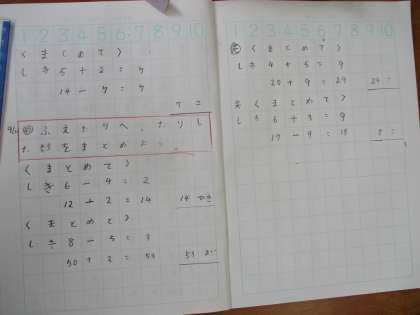 1 2 3 4 5 6 7 8 9 10
〈まとめて〉
しき 5+2=7
14-7=7
7こ
ふえたりへったりし
た数をまとめ
〈まとめて〉
しき 6-4=2
12+2=14
〈まとめて〉
しき 8-5=3
50+3=53
1 2 3 4 5 6 7 8 9 10
〈まとめて〉
しき 4+5=9
20+9=29
〈まとめて〉
しき 6+3=9